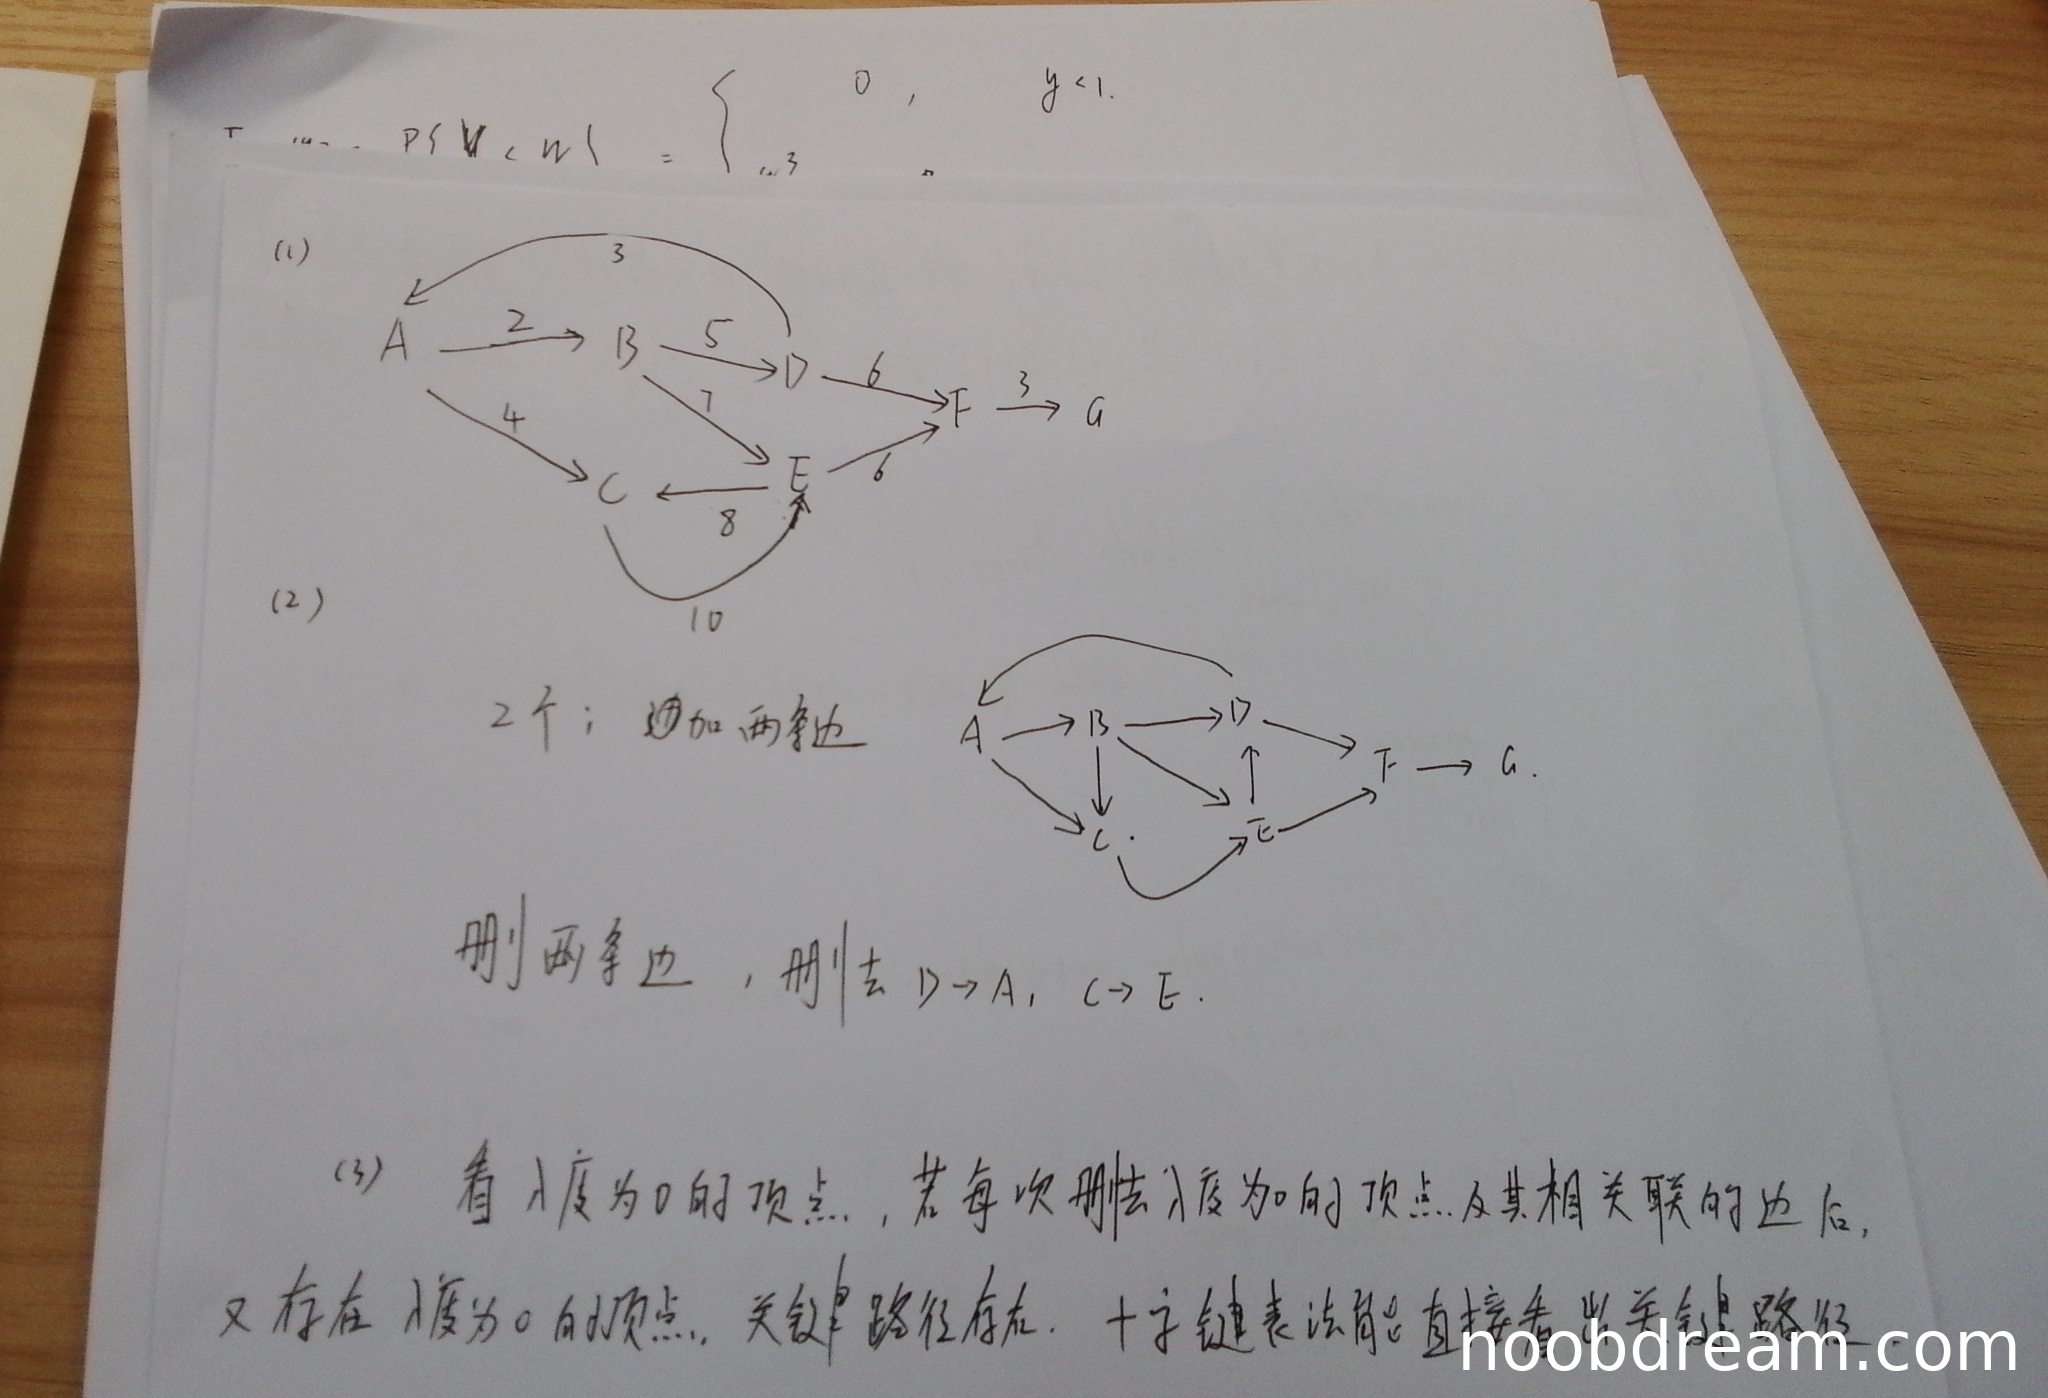 0 , y<1.
=
3
(1)
3
A 2 B 5 D 6 F 3 G
4 7
C 8 E 6
10
(2)
2个; 边加两条边
A B D F G.
C. E
删两条边, 删去 D→A, C→E.
(3) 看入度为0的顶点, 若每次删去入度为0的顶点及其相关联的边后,
又存在入度为0的顶点, 关键路径存在. 十字键表法能直接看出关键路径.
noobdream.com